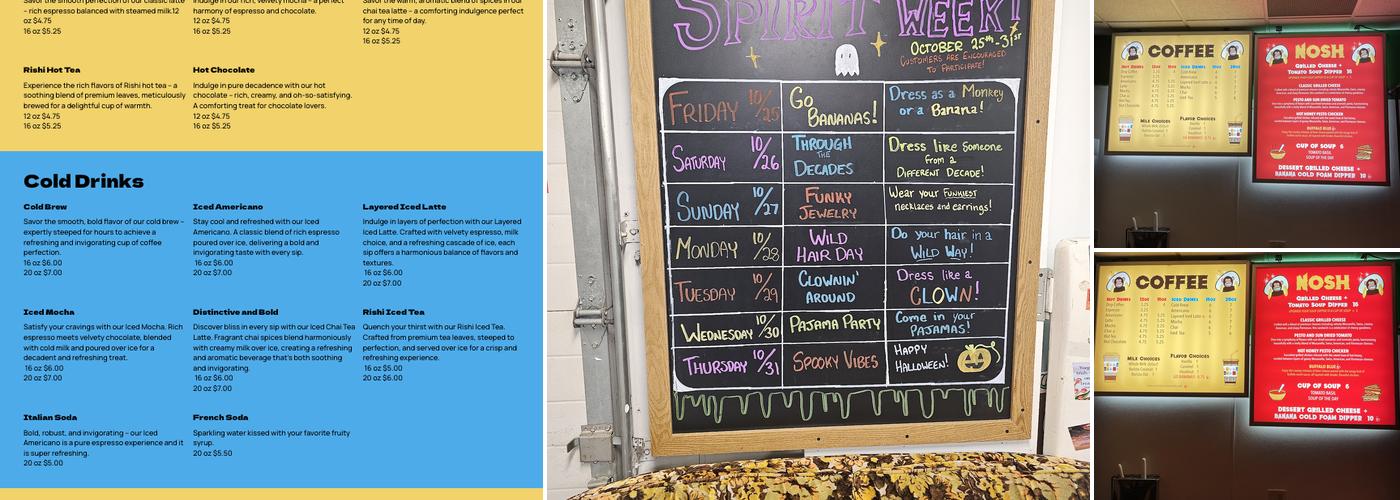 Savor the smooth perfection of our classic latte
– rich espresso balanced with steamed milk.12
oz $4.75
16 oz $5.25
Indulge in our rich, velvety mocha – a perfect
harmony of espresso and chocolate.
12 oz $4.75
16 oz $5.25
Savor the warm, aromatic blend of spices in our
chai tea latte – a comforting indulgence perfect
for any time of day.
12 oz $4.75
16 oz $5.25
Rishi Hot Tea
Experience the rich flavors of Rishi hot tea – a
soothing blend of premium leaves, meticulously
brewed for a delightful cup of warmth.
12 oz $4.75
16 oz $5.25
Hot Chocolate
Indulge in pure decadence with our hot
chocolate – rich, creamy, and oh-so-satisfying.
A comforting treat for chocolate lovers.
12 oz $4.75
16 oz $5.25
Cold Drinks
Cold Brew
Savor the smooth, bold flavor of our cold brew –
expertly steeped for hours to achieve a
refreshing and invigorating cup of coffee
perfection.
16 oz $6.00
20 oz $7.00
Iced Americano
Stay cool and refreshed with our Iced
Americano. A classic blend of rich espresso
poured over ice, delivering a bold and
invigorating taste with every sip.
16 oz $6.00
20 oz $7.00
Layered Iced Latte
Indulge in layers of perfection with our Layered
Iced Latte. Crafted with velvety espresso, milk
choice, and a refreshing cascade of ice, each
sip offers a harmonious balance of flavors and
textures.
16 oz $6.00
20 oz $7.00
Iced Mocha
Satisfy your cravings with our Iced Mocha. Rich
espresso meets velvety chocolate, blended
with cold milk and poured over ice for a
decadent and refreshing treat.
16 oz $6.00
20 oz $7.00
Distinctive and Bold
Discover bliss in every sip with our Iced Chai Tea
Latte. Fragrant chai spices blend harmoniously
with creamy milk over ice, creating a refreshing
and aromatic beverage that's both soothing
and invigorating.
16 oz $6.00
20 oz $7.00
Rishi Iced Tea
Quench your thirst with our Rishi Iced Tea.
Crafted from premium tea leaves, steeped to
perfection, and served over ice for a crisp and
refreshing experience.
16 oz $5.00
20 oz $6.00
Italian Soda
Bold, robust, and invigorating – our Iced
Americano is a pure espresso experience and it
is super refreshing.
20 oz $5.00
French Soda
Sparkling water kissed with your favorite fruity
syrup.
20 oz $5.50
SPIRIT WEEK!
OCTOBER 25th-31st
CUSTOMERS ARE ENCOURAGED
TO PARTICIPATE!
FRIDAY 10/25 GO BANANAS! Dress as a Monkey or a Banana!
SATURDAY 10/26 THROUGH THE DECADES Dress like Someone from a DIFFERENT DECADE!
SUNDAY 10/27 FUNKY JEWELRY Wear your FUNKIEST necklaces and earrings!
MONDAY 10/28 WILD HAIR DAY Do your hair in a WILD WAY!
TUESDAY 10/29 CLOWNIN' AROUND Dress like a CLOWN!
WEDNESDAY 10/30 PAJAMA PARTY Come in your PAJAMAS!
THURSDAY 10/31 SPOOKY VIBES HAPPY HALLOWEEN!
COFFEE
HOT DRINKS 12oz 16oz ICED DRINKS 16oz 20oz
MILK CHOICES
FLAVOR CHOICES
NOSH
GRILLED CHEESE +
TOMATO SOUP DIPPER 16
CLASSIC GRILLED CHEESE
PESTO AND SUN DRIED TOMATO
HOT HONEY PESTO CHICKEN
BUFFALO BLUE
CUP OF SOUP 6
TOMATO BASIL
SOUP OF THE DAY
DESSERT GRILLED CHEESE +
BANANA COLD FOAM DIPPER 10
COFFEE
HOT DRINKS 12oz 16oz ICED DRINKS 16oz 20oz
MILK CHOICES
FLAVOR CHOICES
NOSH
GRILLED CHEESE +
TOMATO SOUP DIPPER 16
CLASSIC GRILLED CHEESE
PESTO AND SUN DRIED TOMATO
HOT HONEY PESTO CHICKEN
BUFFALO BLUE
CUP OF SOUP 6
TOMATO BASIL
SOUP OF THE DAY
DESSERT GRILLED CHEESE +
BANANA COLD FOAM DIPPER 10